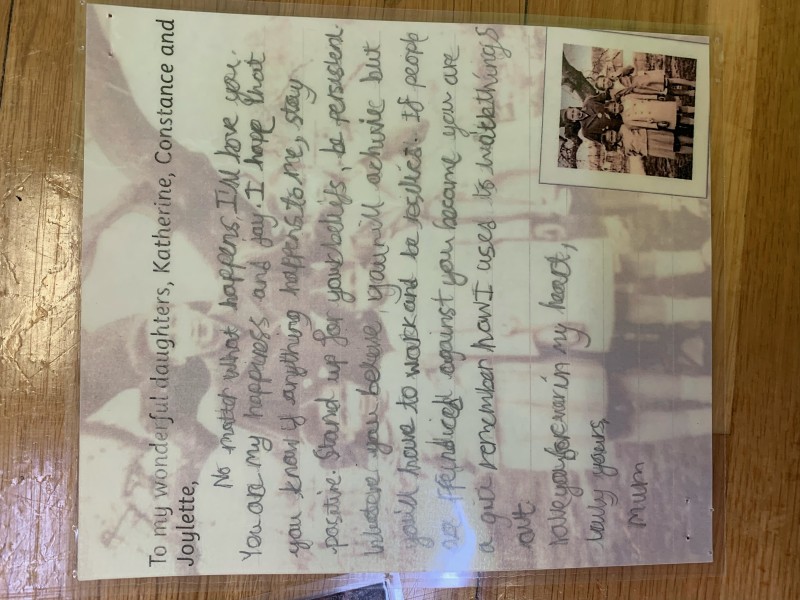 To my wonderful daughters, Katherine, Constance and
Joylette,
No matter what happens I'll love you.
You are my happiness and joy. I hope that
you know if anything happens to me, stay
positive. Stand up for your beliefs, be persistent.
believe you believe, you will achieve but
you'll have to work and be resilient. If people
are against you because you are
a girl remember how I used to things
out.
love you forever in my heart,
truly yours
Mum